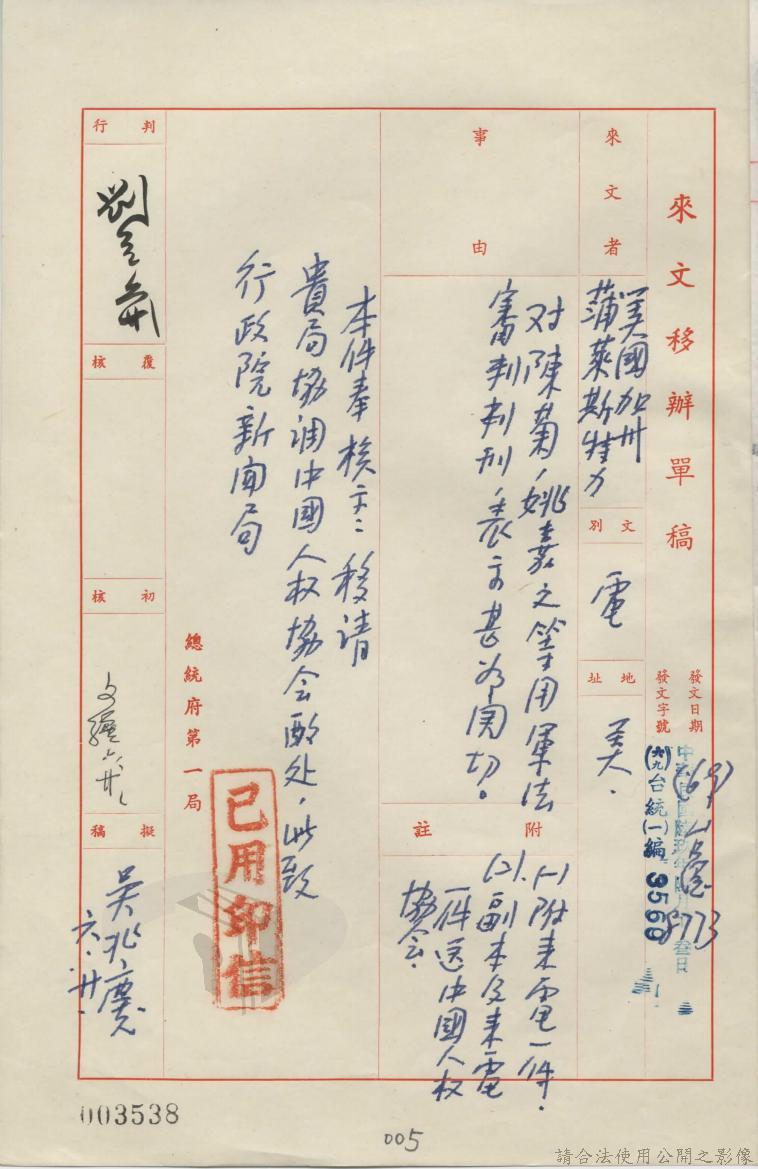 來文移辦單稿
發文日期
發文字號
中華民國陸玖年陸月 叁日
(六九)台統(一)編 3560
來文者
美國加州
蒲萊斯特力
文別
電
地址
美.
事由
对陳菊、姚嘉文等用軍法
審判判刑,表示甚为関切。
附註
(一)附来電一件.
(二).副本及来電
一件送中國人权
協会.
本件奉 核示:移請
貴局協调中國人权協会酌处,此致
行政院新闻局
總統府第一局
已用印信
判行
覆核
初核
擬稿
吳兆
六.廿.
003538
005
請合法使用公開之影像